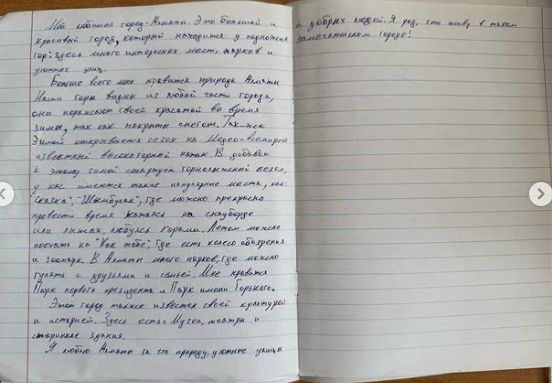 Мой любимый город-Алматы. Это большой и
красивый город, который находится у подножья
гор. Здесь много интересных мест, парков и
уютных улиц.
Больше всего мне нравится природа Алматы.
Наши горы видны из любой части города,
они поражают своей красотой во время
зимы, так как покрыты снегом. Так-же
зимой открывается сезон на Медео-всемирно
известный высокогорный каток. В добавок
к этому зимой стартует горнолыжный сезон,
у нас имеются такие популярные места, как:
"Сказка", "Шымбулак", где можно прекрасно
провести время катаясь на сноуборде
или лыжах, любуясь горами. Летом можно
поехать на "Кок тобе", где есть колесо обозрения
и зоопарк. В Алматы много парков, где можно
гулять с друзьями и семьей. Мне нравится
Парк первого президента и Парк имени Горького.
Этот город также известен своей культурой
и историей. Здесь есть: Музеи, театры и
старинные здания.
Я люблю Алматы за его природу, уютные улицы
и добрых людей. Я рад, что живу в таком
замечательном городе!